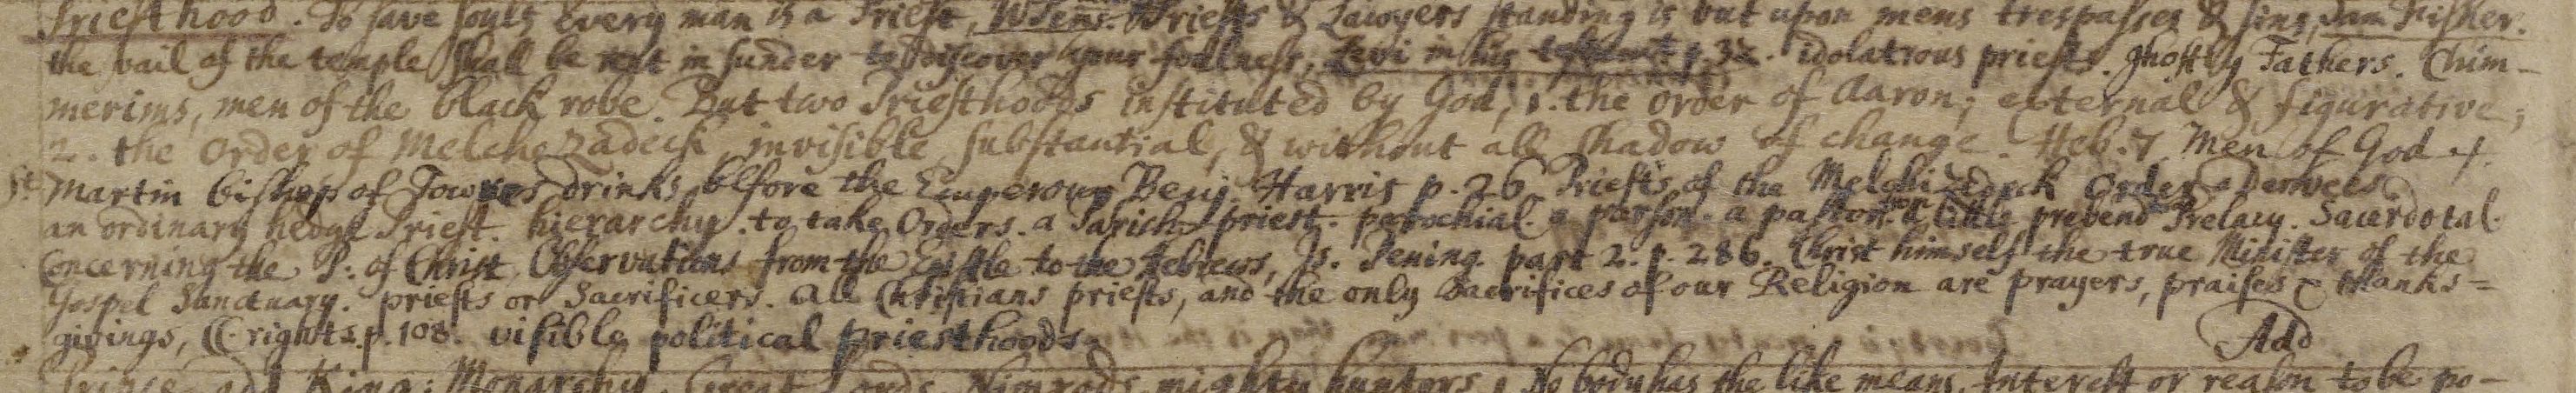 Priesthood. To save souls every man is a Priest, Priests & Lawyers standing is but upon mens trespasses & sins, Sam. Fisher.
the vail of the temple shall be rent in sunder to discover your foulness, Levi in his testament p. 32. idolatrous priests. ghostly Fathers. Chim-
merims, men of the black robe. But two Priesthoods instituted by God, 1. the order of Aaron; external & figurative;
2. the Order of Melchezadeck, invisible, substantial, & without all shadow of change. Heb. 7. Men of God
St. Martin bishop of Towres drinks before the Emperour, Benj. Harris p. 26 Priests of the Melchizedeck Order
an ordinary hedge Priest. hierarchy. to take Orders. a Parich-priest. parochial. a parson. a pastor. a little prebend Prelacy. Sacerdotal.
Concerning the P: of Christ Observations from the Epistle to the Hebrews, Is. Pening. part 2. p. 286. Christ himself the true Minister of the
Gospel Sanctuary. priests or Sacrificers. All Christians priests, and the only Sacrifices of our Religion are prayers, praises & thanks=
givings, rights. p. 108. visible political priesthoods.
Add
King: Monarchy. Great Lords. Nimrods mighty hunters. No body has the like means, Interest or reason to be po-